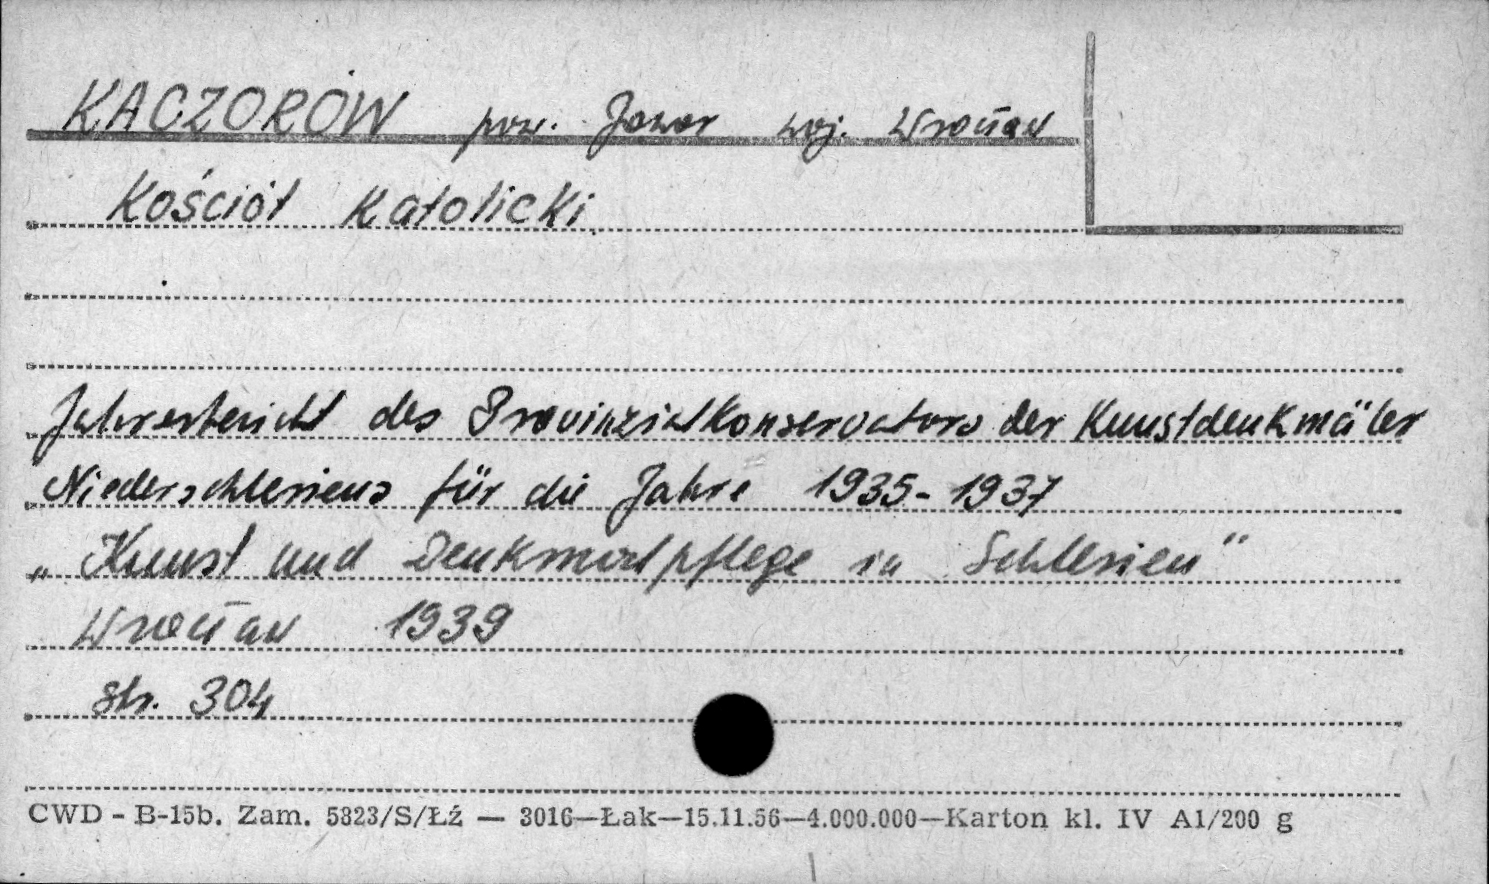 KACZORÓW pow. Jawor woj. Wrocław
Kościół Katolicki
Jahresbericht des Provinzialkonservators der Kunstdenkmäler
Niederschlesiens für die Jahre 1935-1937
„Kunst und Denkmalpflege in Schlesien"
Wrocław 1939
str. 304
CWD - B-15b. Zam. 5823/S/Łź — 3016—Łak—15.11.56—4.000.000—Karton kl. IV A1/200 g